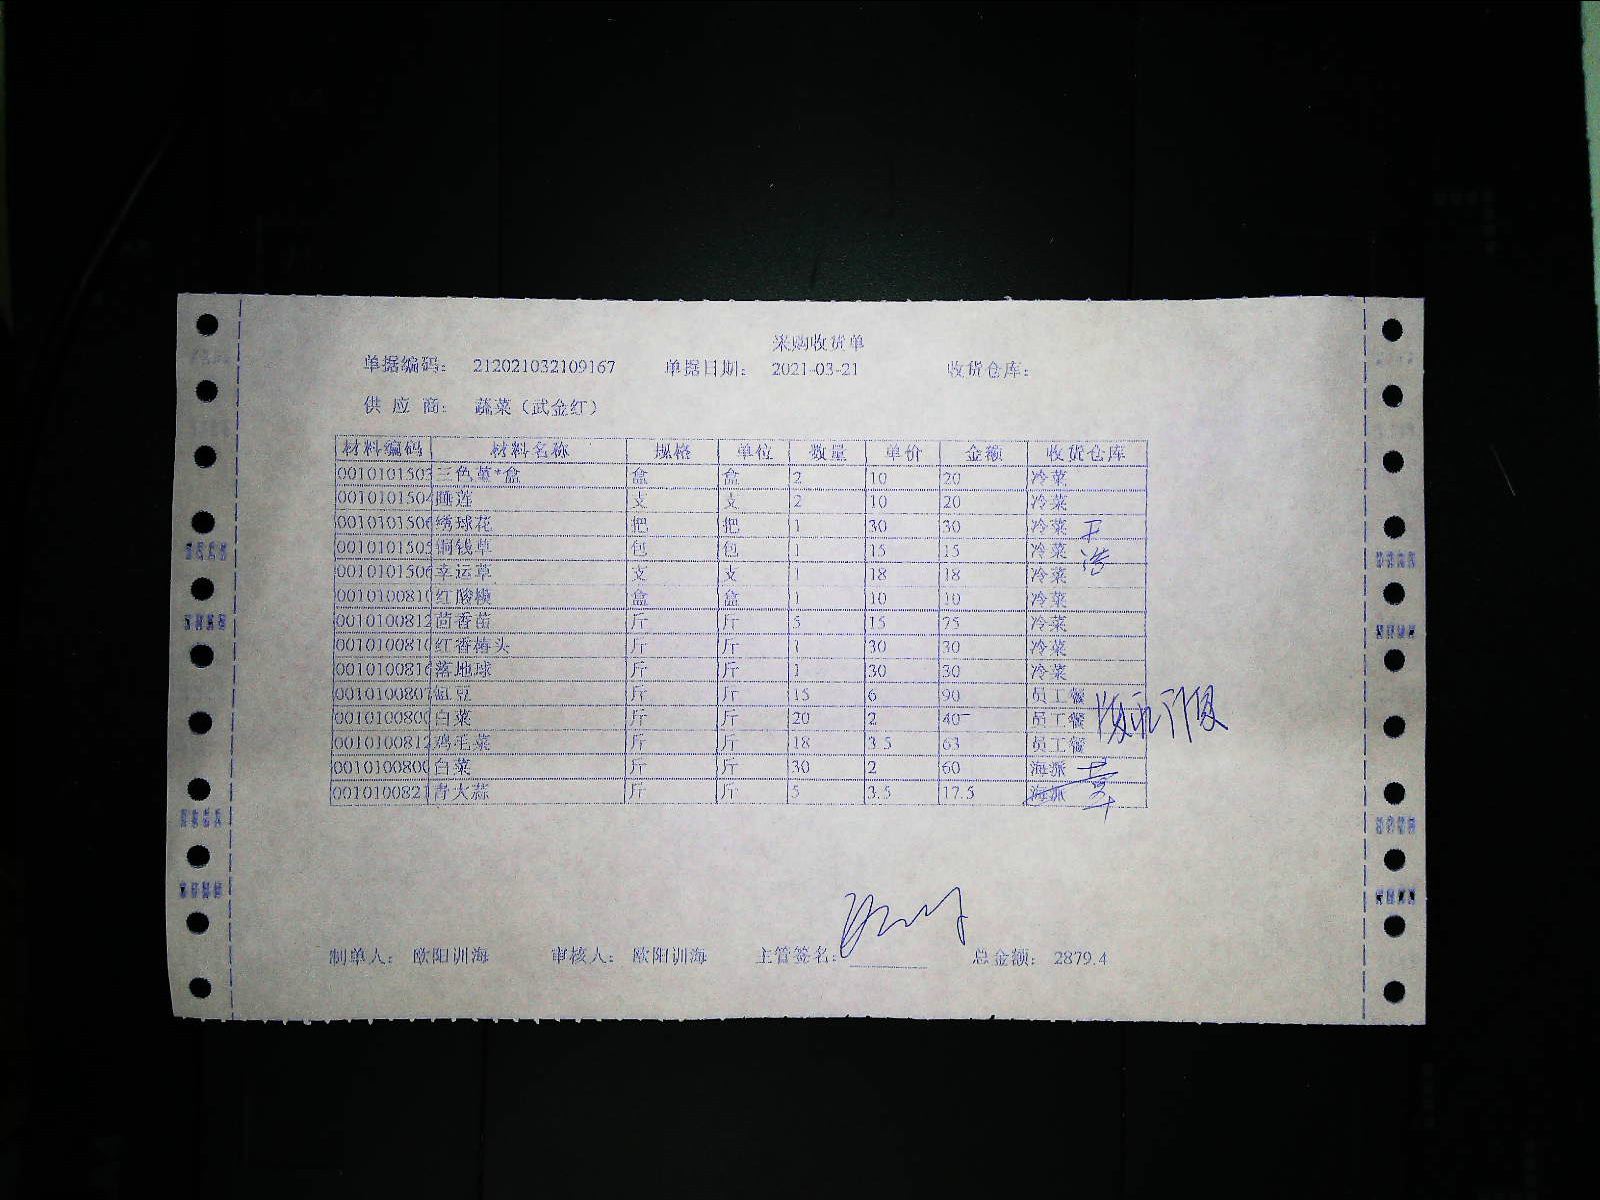 采购收货单
单据编码： 212021032109167 单据日期： 2021-03-21 收货仓库：
供 应 商： 蔬菜（武金红）
材料编码 材料名称 规格 单位 数量 单价 金额 收货仓库
0010101503 三色堇*盒 盒 盒 2 10 20 冷菜
0010101504 睡莲 支 支 2 10 20 冷菜
0010101506 绣球花 把 把 1 30 30 冷菜
0010101505 铜钱草 包 包 1 15 15 冷菜
0010101506 幸运草 支 支 1 18 18 冷菜
001010081 红酸模 盒 盒 1 10 10 冷菜
0010100812 茴香苗 斤 斤 5 15 75 冷菜
001010081 红香椿头 斤 斤 1 30 30 冷菜
0010100816 落地球 斤 斤 1 30 30 冷菜
0010100807 豇豆 斤 斤 15 6 90 员工餐
001010080 白菜 斤 斤 20 2 40 员工餐
0010100812 鸡毛菜 斤 斤 18 3.5 63 员工餐
001010080 白菜 斤 斤 30 2 60 海派
0010100821 青大蒜 斤 斤 5 3.5 17.5 海派
制单人： 欧阳训海 审核人： 欧阳训海 主管签名： 总金额： 2879.4